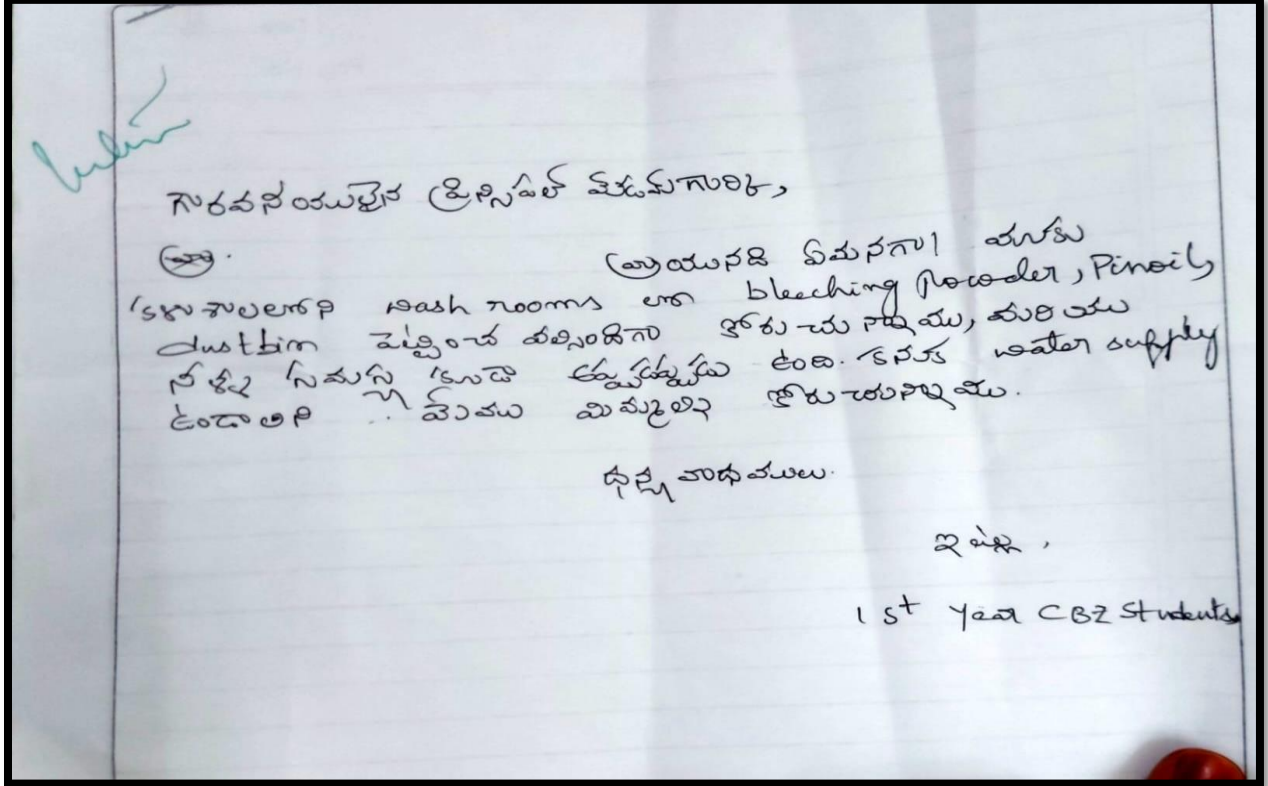 గురవనీయులైన ప్రిన్సిపల్ మేడమ్ గారికి,
వ్రాయునది ఏమనగా। మాకు
కళాశాలలోని wash rooms లో bleaching Powder, Pinoil,
dustbin పెట్టించ వల్సిందిగా కోరుచున్నాము, మరియు
నీళ్ళ సమస్య కూడా అప్పుడప్పుడు ఉంది. కనుక water supply
ఉండాలని మేము మిమ్మల్ని కోరుచున్నాము.
ధన్యవాధములు.
ఇట్లు,
1st Year CBZ Students